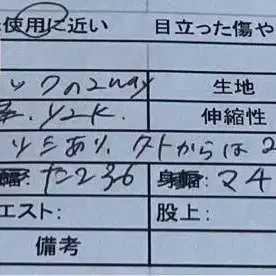 使用に近い 目立った傷や
ックの2way 生地
Y2K. 伸縮性
ツミあり、クトからは2
たこ36 身幅 マ4
エスト: 股上:
備考